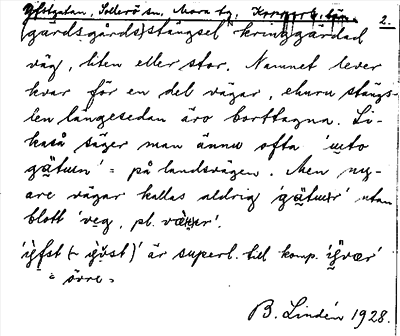 Yfstgatan, Sollerö sn, Mora tg; 2.
(gärdsgårds)stängsel kringgärdad
väg, liten eller stor. Namnet lever
kvar för en del vägar, ehuru stängs-
len längesedan äro borttagna. Li-
kaså säger man ännu ofta 'uto
gätun' = på landsvägen. Men ny-
are vägar kallas aldrig 'gätur' utan
blott 'veg, pl. vager'.
är superl. till komp.
= övre =
B. Lindén 1928.